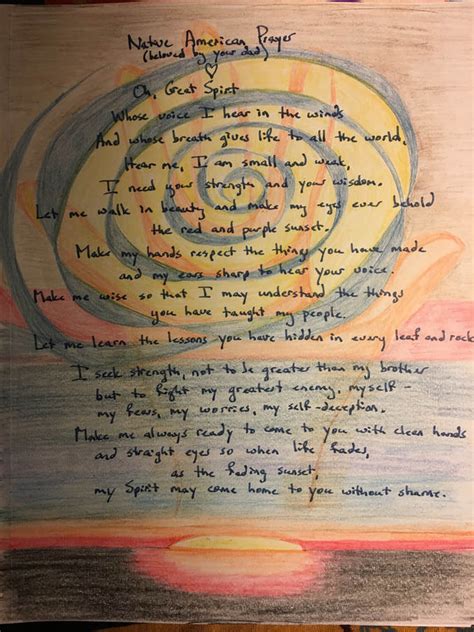 Native American Prayer
(beloved by your dad)
Oh, Great Spirit
Whose voice I hear in the winds
And whose breath gives life to all the world.
Hear me, I am small and weak,
I need your strength and your wisdom.
Let me walk in beauty and make my eyes ever behold
the red and purple sunset.
Make my hands respect the things you have made
and my ears sharp to hear your voice.
Make me wise so that I may understand the things
you have taught my people.
Let me learn the lessons you have hidden in every leaf and rock
I seek strength, not to be greater than my brother
but to fight my greatest enemy, myself -
my fears, my worries, my self-deception.
Make me always ready to come to you with clean hands
and straight eyes so when life fades,
as the fading sunset
my Spirit may come home to you without shame.